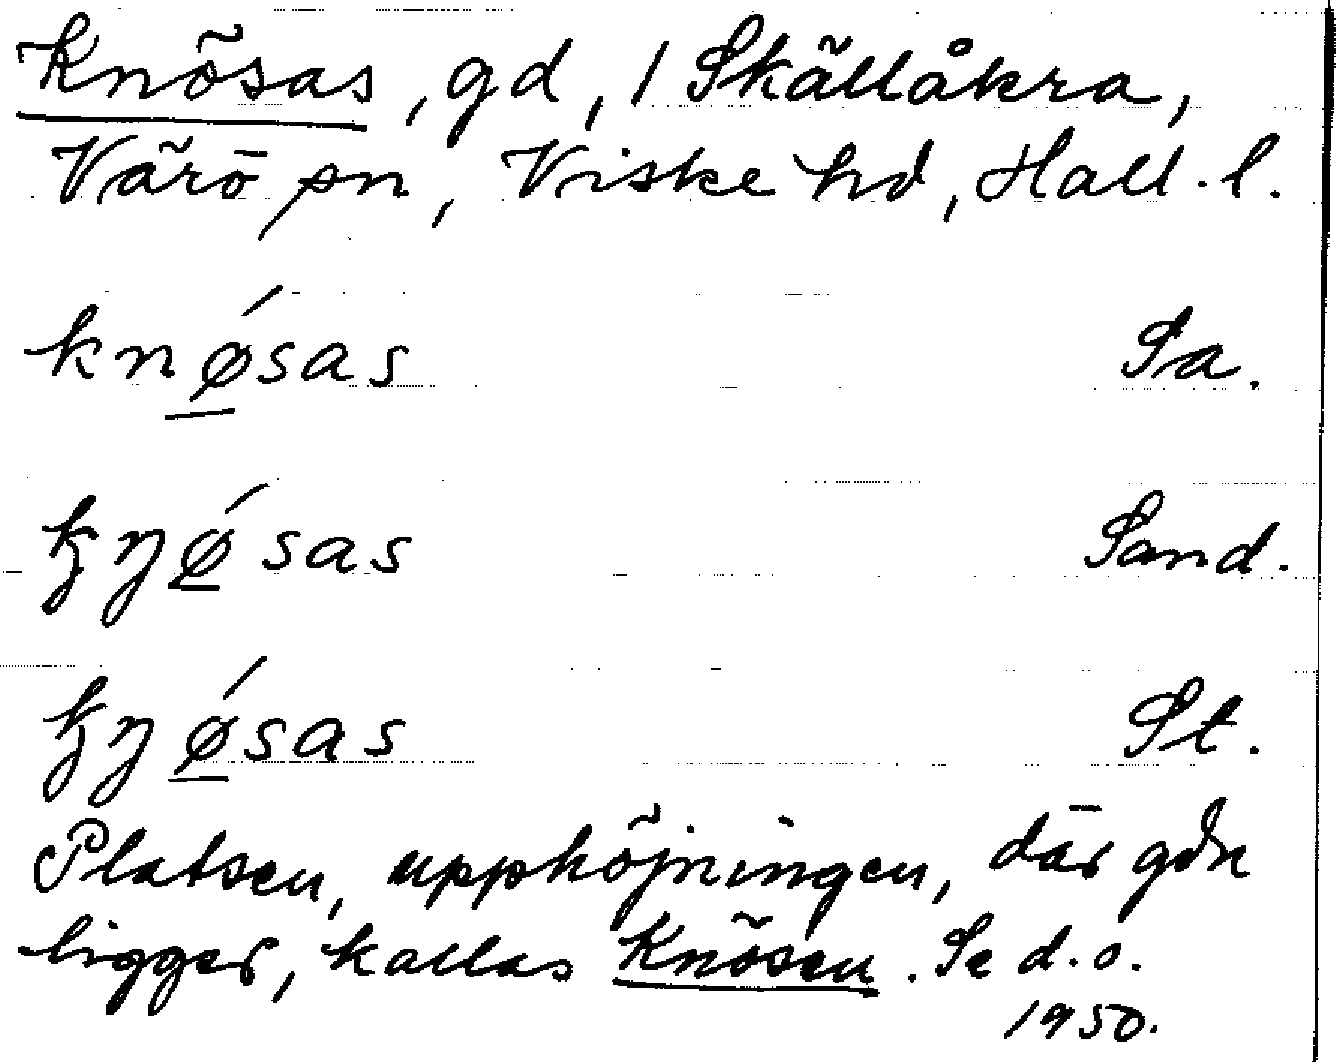 Knösas, gd, 1 Skällåkra,
Värö sn, Viske hd, Hall. l.
knǿ̱sas Sa.
kn̥ǿ̱sas Sand.
kn̥ǿ̱sas St.
Platsen, upphöjningen, där gdn
ligger, kallas Knösen. Se d.o.
1950.